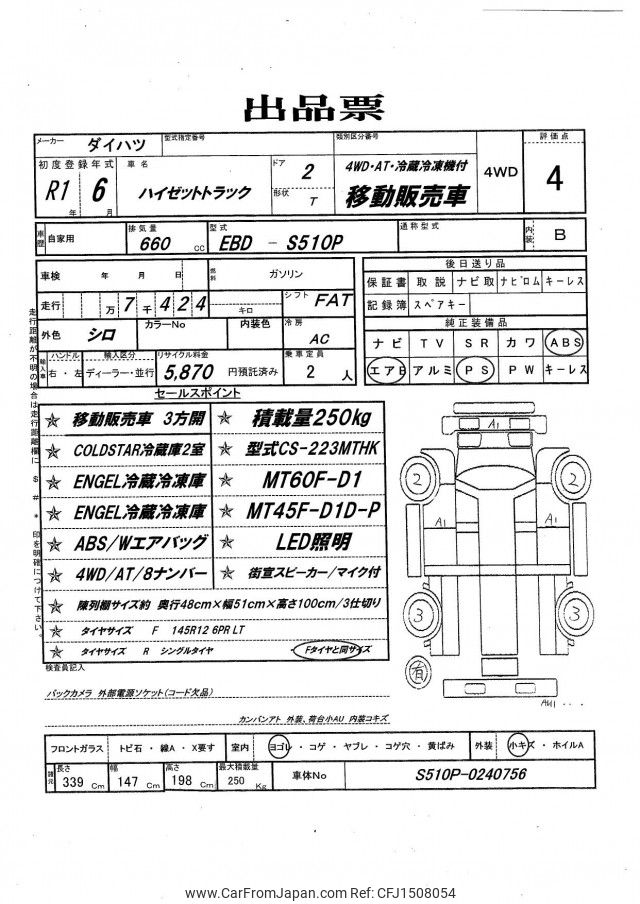 出品票
メーカー ダイハツ 型式指定番号 類別区分番号 評価点
初度登録年式 R1 年 6 月 車名 ハイゼットトラック ドア 2 形状 T 4WD・AT・冷蔵冷凍機付 移動販売車 4WD 4
車歴 自家用 排気量 660 cc 型式 EBD - S510P 通称型式 内装 B
車検 年 月 日 燃料 ガソリン 後日送り品
保証書 取説 ナビ取 ナビロム キーレス
走行 万 7 千 424 キロ シフト FAT 記録簿 スペアキー
外色 シロ カラーNo 内装色 冷房 AC 純正装備品
ナビ TV SR カワ ABS
輸入車 ハンドル 右・左 輸入区分 ディーラー・並行 リサイクル料金 5,870 円預託済み 乗車定員 2 人 エアB アルミ PS PW キーレス
走行距離が不明の場合は走行距離欄に $ # * 印を明確につけて下さい。
セールスポイント
☆ 移動販売車 3方開 ☆ 積載量250kg
☆ COLDSTAR冷蔵庫2室 ☆ 型式CS-223MTHK
☆ ENGEL冷蔵冷凍庫 ☆ MT60F-D1
☆ ENGEL冷蔵冷凍庫 ☆ MT45F-D1D-P
☆ ABS/Wエアバッグ ☆ LED照明
☆ 4WD/AT/8ナンバー ☆ 街宣スピーカー/マイク付
☆ 陳列棚サイズ約 奥行48cm×幅51cm×高さ100cm/3仕切り
☆ タイヤサイズ F 145R12 6PR LT
☆ タイヤサイズ R シングルタイヤ ・ Fタイヤと同サイズ
A1
2 2
A1 A1
3 3
有
AU1 ...
検査員記入
バックカメラ 外部電源ソケット(コード欠品)
カンバンアト 外装、荷台小AU 内装コキズ
フロントガラス トビ石 ・ 線A ・ X要す 室内 ヨゴレ ・ コゲ ・ ヤブレ ・ コゲ穴 ・ 黄ばみ 外装 小キズ ・ ホイルA
諸元 長さ 339 Cm 幅 147 Cm 高さ 198 Cm 最大積載量 250 Kg 車体No S510P-0240756
www.CarFromJapan.com Ref: CFJ1508054